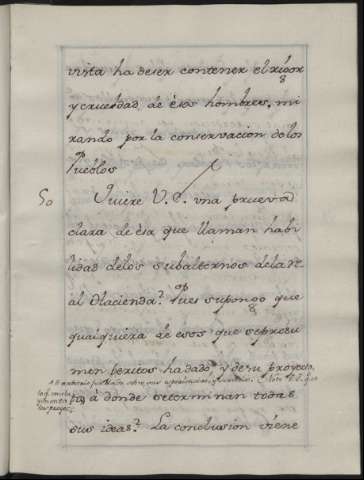 vista ha deser contener el rigor
y crueldad de esos hombres, mi
rando por la conservacion delos
Pueblos
50 Quiere V. S. vna prueva
clara de ésa que llaman habi
lidad delos subalternos dela Re
al Hacienda? Pues supongo que
qualquiera de esos que sepresu
men peritos ha dado y de su proyecto,
à donde determinan todas
sus ideas? La conclusion viene